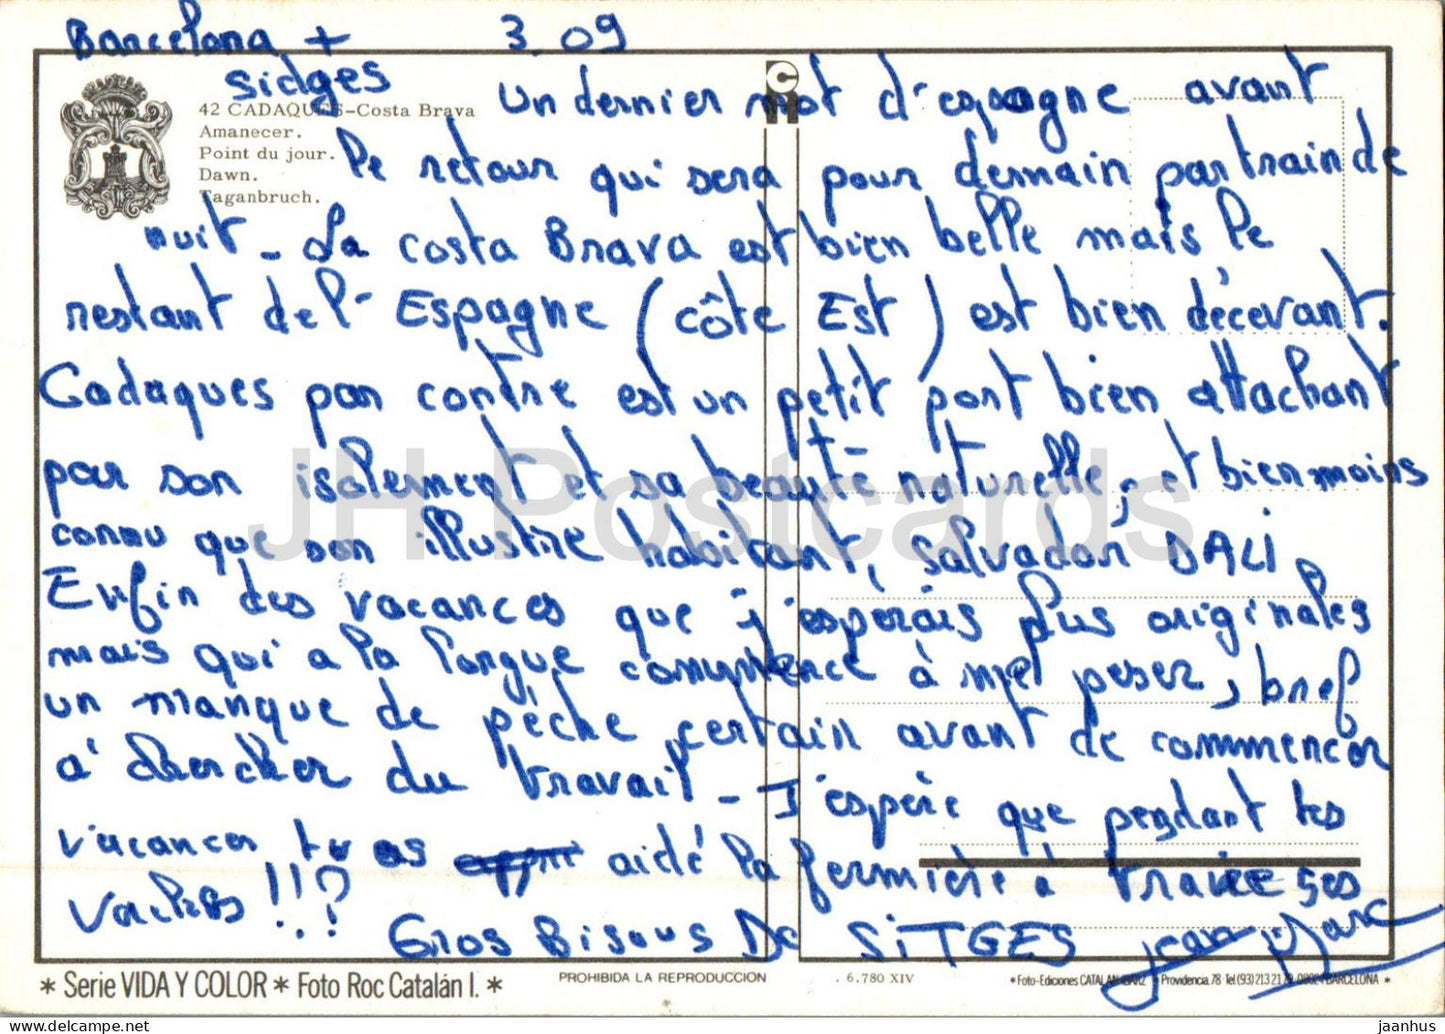 Barcelona + 3.09
Sidges
42 CADAQUES-Costa Brava
Amanecer.
Point du jour.
Dawn.
Taganbruch.
Un dernier mot d'espagne avant
le retour qui sera pour demain par train de
nuit - La costa Brava est bien belle mais le
restant de l'Espagne (côte Est) est bien décevant.
Cadaques par contre est un petit port bien attachant
par son isolement et sa beauté naturelle, et bien moins
connu que son illustre habitant, Salvador DALI.
Enfin des vacances que j'esperais plus originales
mais qui a la longue commence à me peser, bref
un manque de pêche certain avant de commencer
a' chercher du travail - J'espère que pendant tes
vacances tu as aidé la fermière à traire ses
vaches !!?
Gros Bisous De SITGES Jean Marc
JH Postcards
* Serie VIDA Y COLOR * Foto Roc Catalán I. *
PROHIBIDA LA REPRODUCCION
. 6.780 XIV
* Foto-Ediciones CATALAN IBARZ * Providencia, 78 Tel. (93) 213 21 79 - 08024 BARCELONA *
delcampe.net
jaanhus